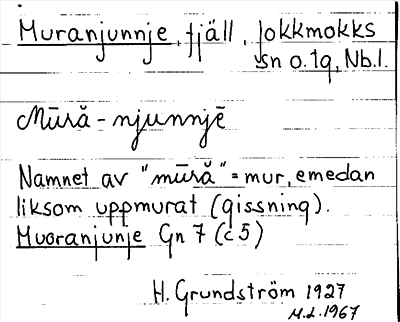 Muranjunnje, fjäll, Jokkmokks
sn o. lq, Nb.l.
Mūră-njunnjē
Namnet av "mūră" = mur, emedan
liksom uppmurat (gissning).
Muoranjunje Gn 7 (c5)
H. Grundström 1927
M.L. 1967